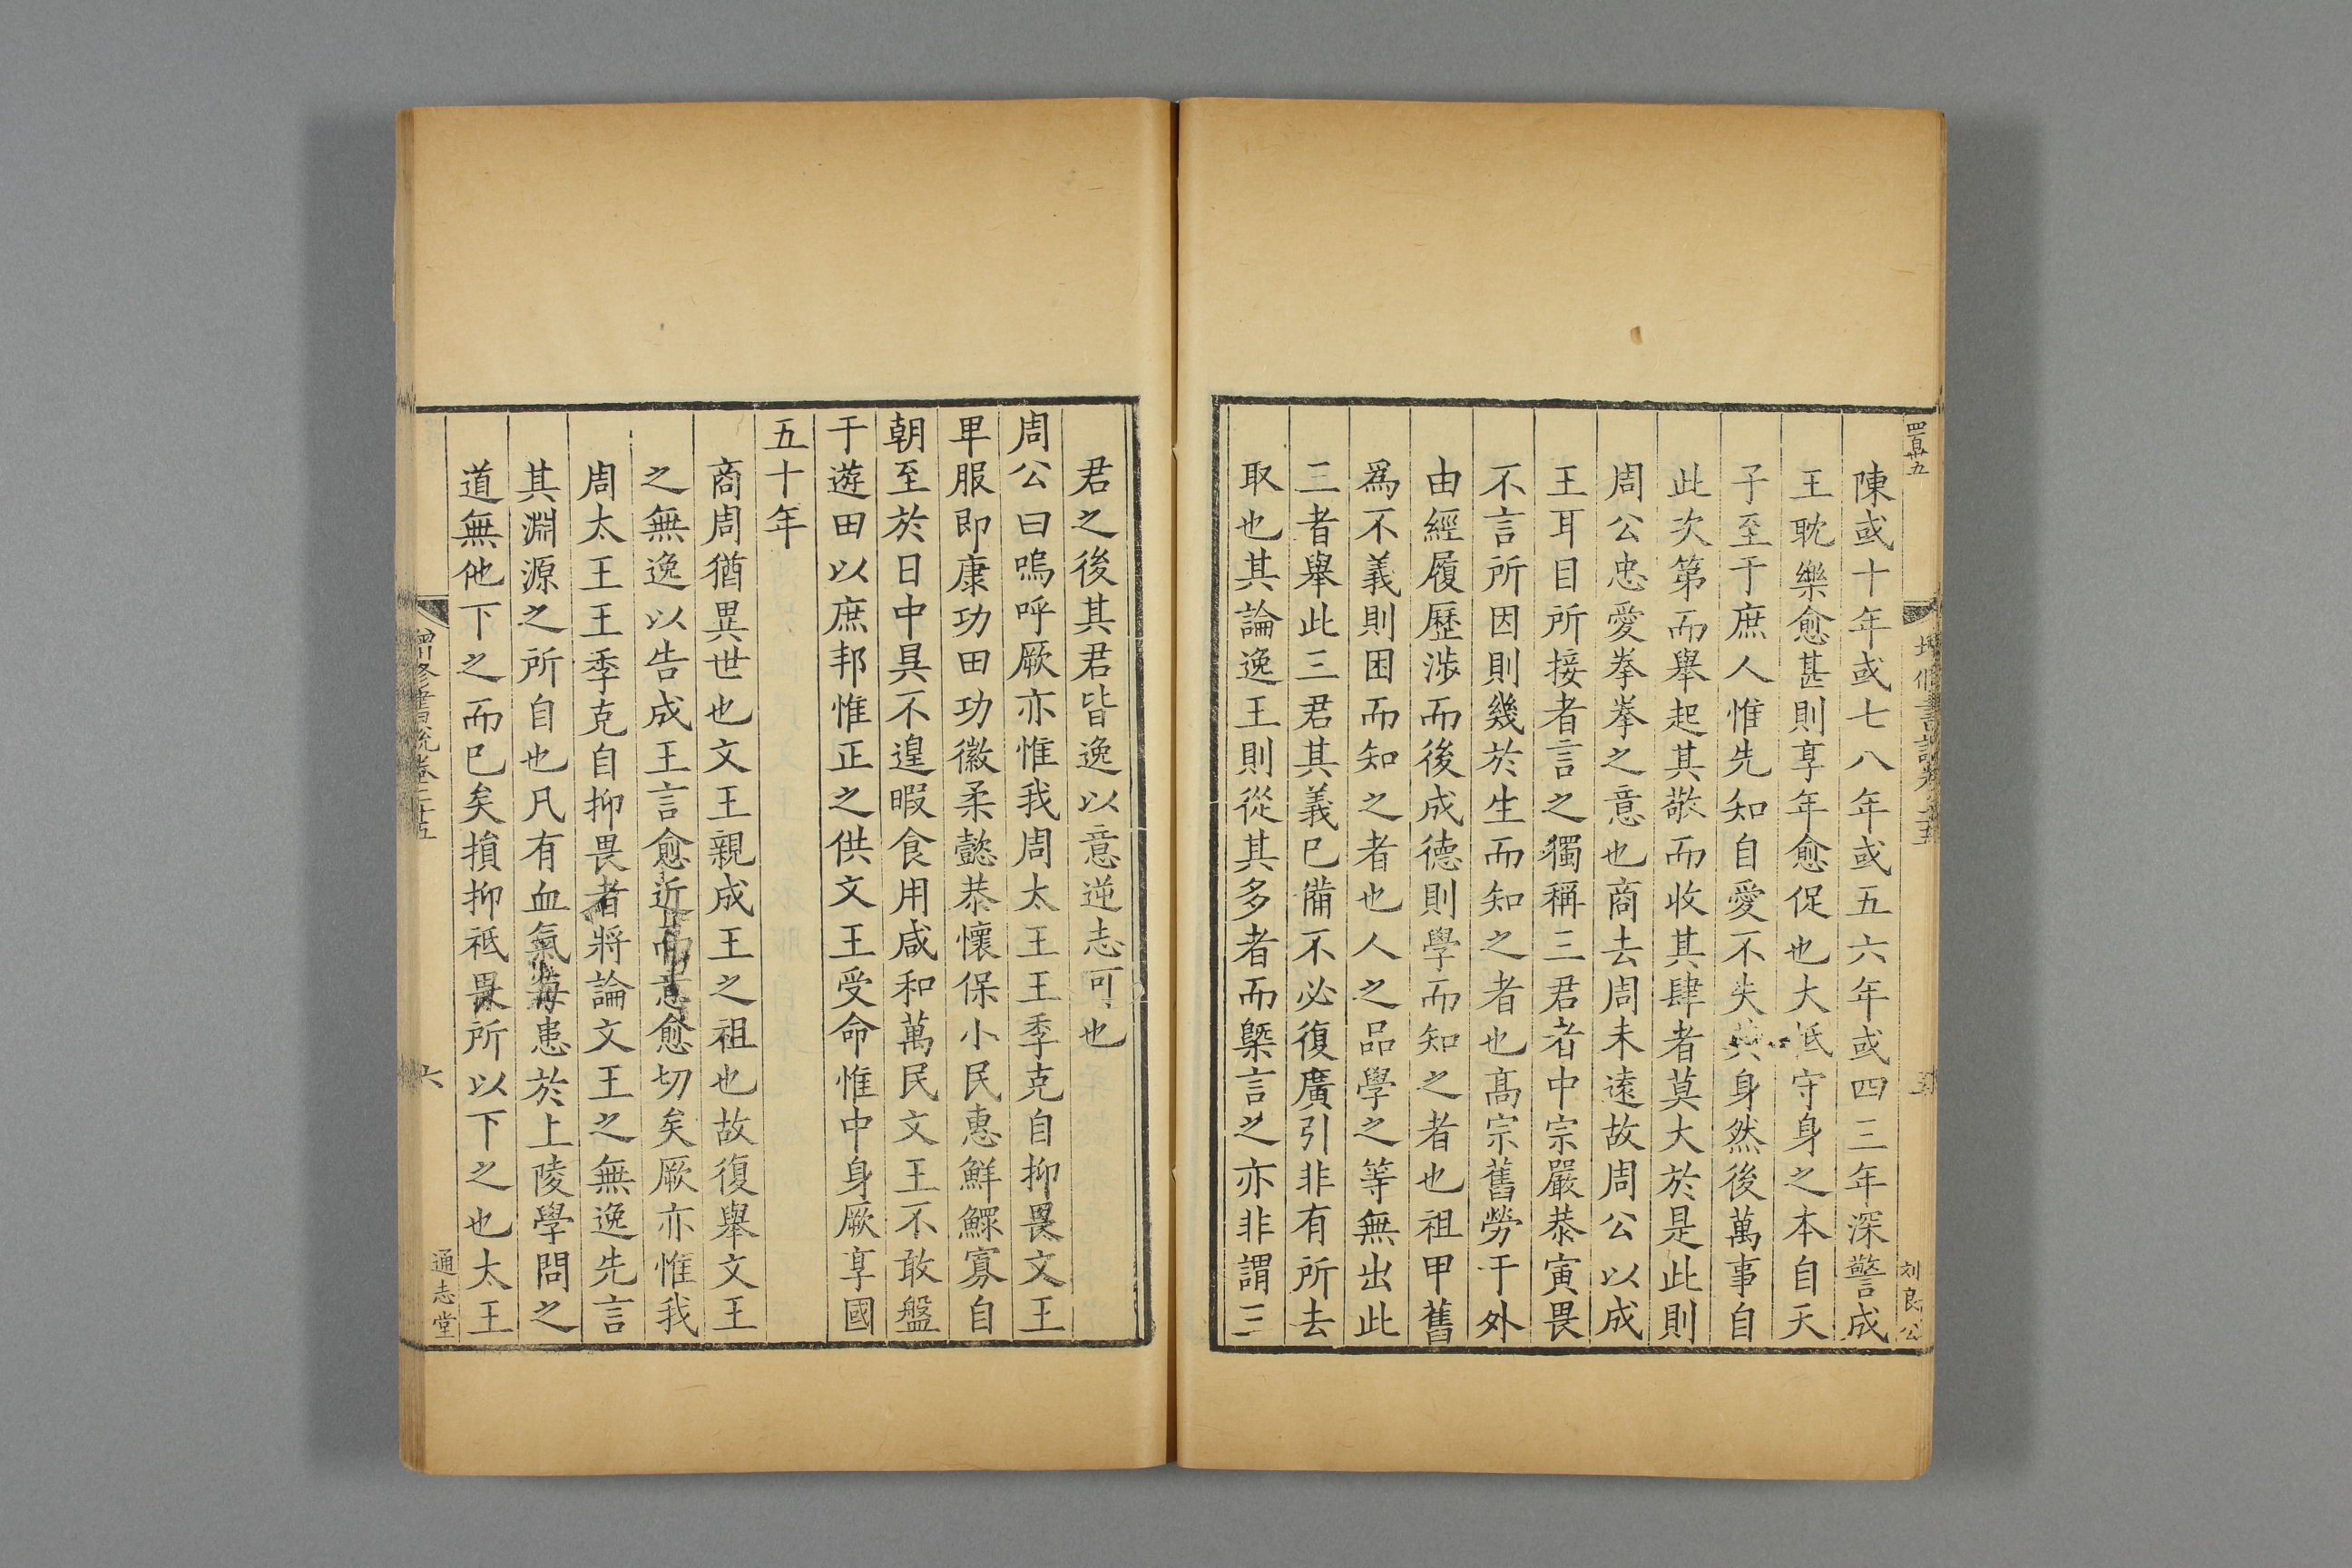 陳或十年或七八年或五六年或四三年深警成
王耽樂愈甚則享年愈促也大抵守身之本自天
子至于庶人惟先知自愛不失其身然後萬事自
此次第而舉起其敬而收其肆者莫大於是此則
周公忠愛拳拳之意也商去周未遠故周公以成
王耳目所接者言之獨稱三君者中宗嚴恭寅畏
不言所因則幾於生而知之者也高宗舊勞于外
由經履歷涉而後成德則學而知之者也祖甲舊
爲不義則困而知之者也人之品學之等無出此
三者舉此三君其義巳備不必復廣引非有所去
取也其論逸王則從其多者而槩言之亦非謂三
君之後其君皆逸以意逆志可也
周公曰嗚呼厥亦惟我周太王王季克自抑畏文王
卑服即康功田功徽柔懿恭懷保小民惠鮮鰥寡自
朝至於日中昃不遑暇食用咸和萬民文王不敢盤
于遊田以庶邦惟正之供文王受命惟中身厥享國
五十年
商周猶異世也文王親成王之祖也故復舉文王
之無逸以告成王言愈近而意愈切矣厥亦惟我
周太王王季克自抑畏者將論文王之無逸先言
其淵源之所自也凡有血氣每患於上陵學問之
道無他下之而巳矣損抑祗畏所以下之也太王
增修書說卷二十五
六
通志堂
四百廿五
刘良公